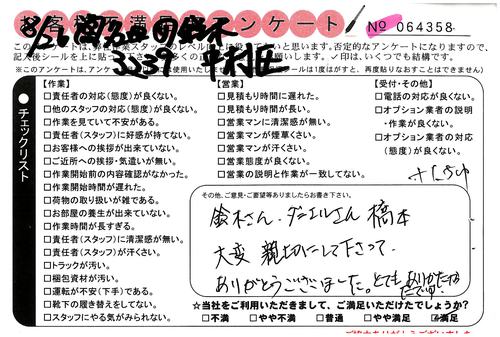 お客様不満足アンケート
No 064358
このアンケートは、弊社作業スタッフのレベル向上に役立てたいと思います。否定的なアンケートになりますので、
✓印は、いくつでも結構です。
チェックリスト
【作業】
□責任者の対応(態度)が良くない。
□他のスタッフの対応(態度)が良くない。
□作業を見ていて不安がある。
□責任者(スタッフ)に好感が持てない。
□お客様への挨拶が出来ていない。
□ご近所への挨拶・気遣いが無い。
□作業開始前の内容確認がなかった。
□作業開始時間が遅れた。
□荷物の取り扱いが雑である。
□お部屋の養生が出来ていない。
□作業時間が長すぎる。
□責任者(スタッフ)に清潔感が無い。
□責任者(スタッフ)が汗くさい。
□トラックが汚い。
□梱包資材が汚い。
□運転が不安(下手)である。
□靴下の履き替えをしてない。
□スタッフにやる気がみられない。
【営業】
□見積もり時間に遅れた。
□見積もり時間が長い。
□営業マンに清潔感が無い。
□営業マンが煙草くさい。
□営業マンが汗くさい。
□営業態度が良くない。
□営業の説明と作業が一致してない。
【受付・その他】
□電話の対応が良くない。
□オプション業者の説明
・作業が良くない。
□オプション業者の対応
(態度)が良くない。
その他、ご意見・ご要望等ありましたらお書き下さい。
鈴木さん、ダニエルさん 橋本
大変 親切にして下さって、
ありがとうございました。とても ありがたかった
です。
☆当社をご利用いただきまして、ご満足いただけたでしょうか?
□不満 □やや不満 □普通 □やや満足 ☑満足